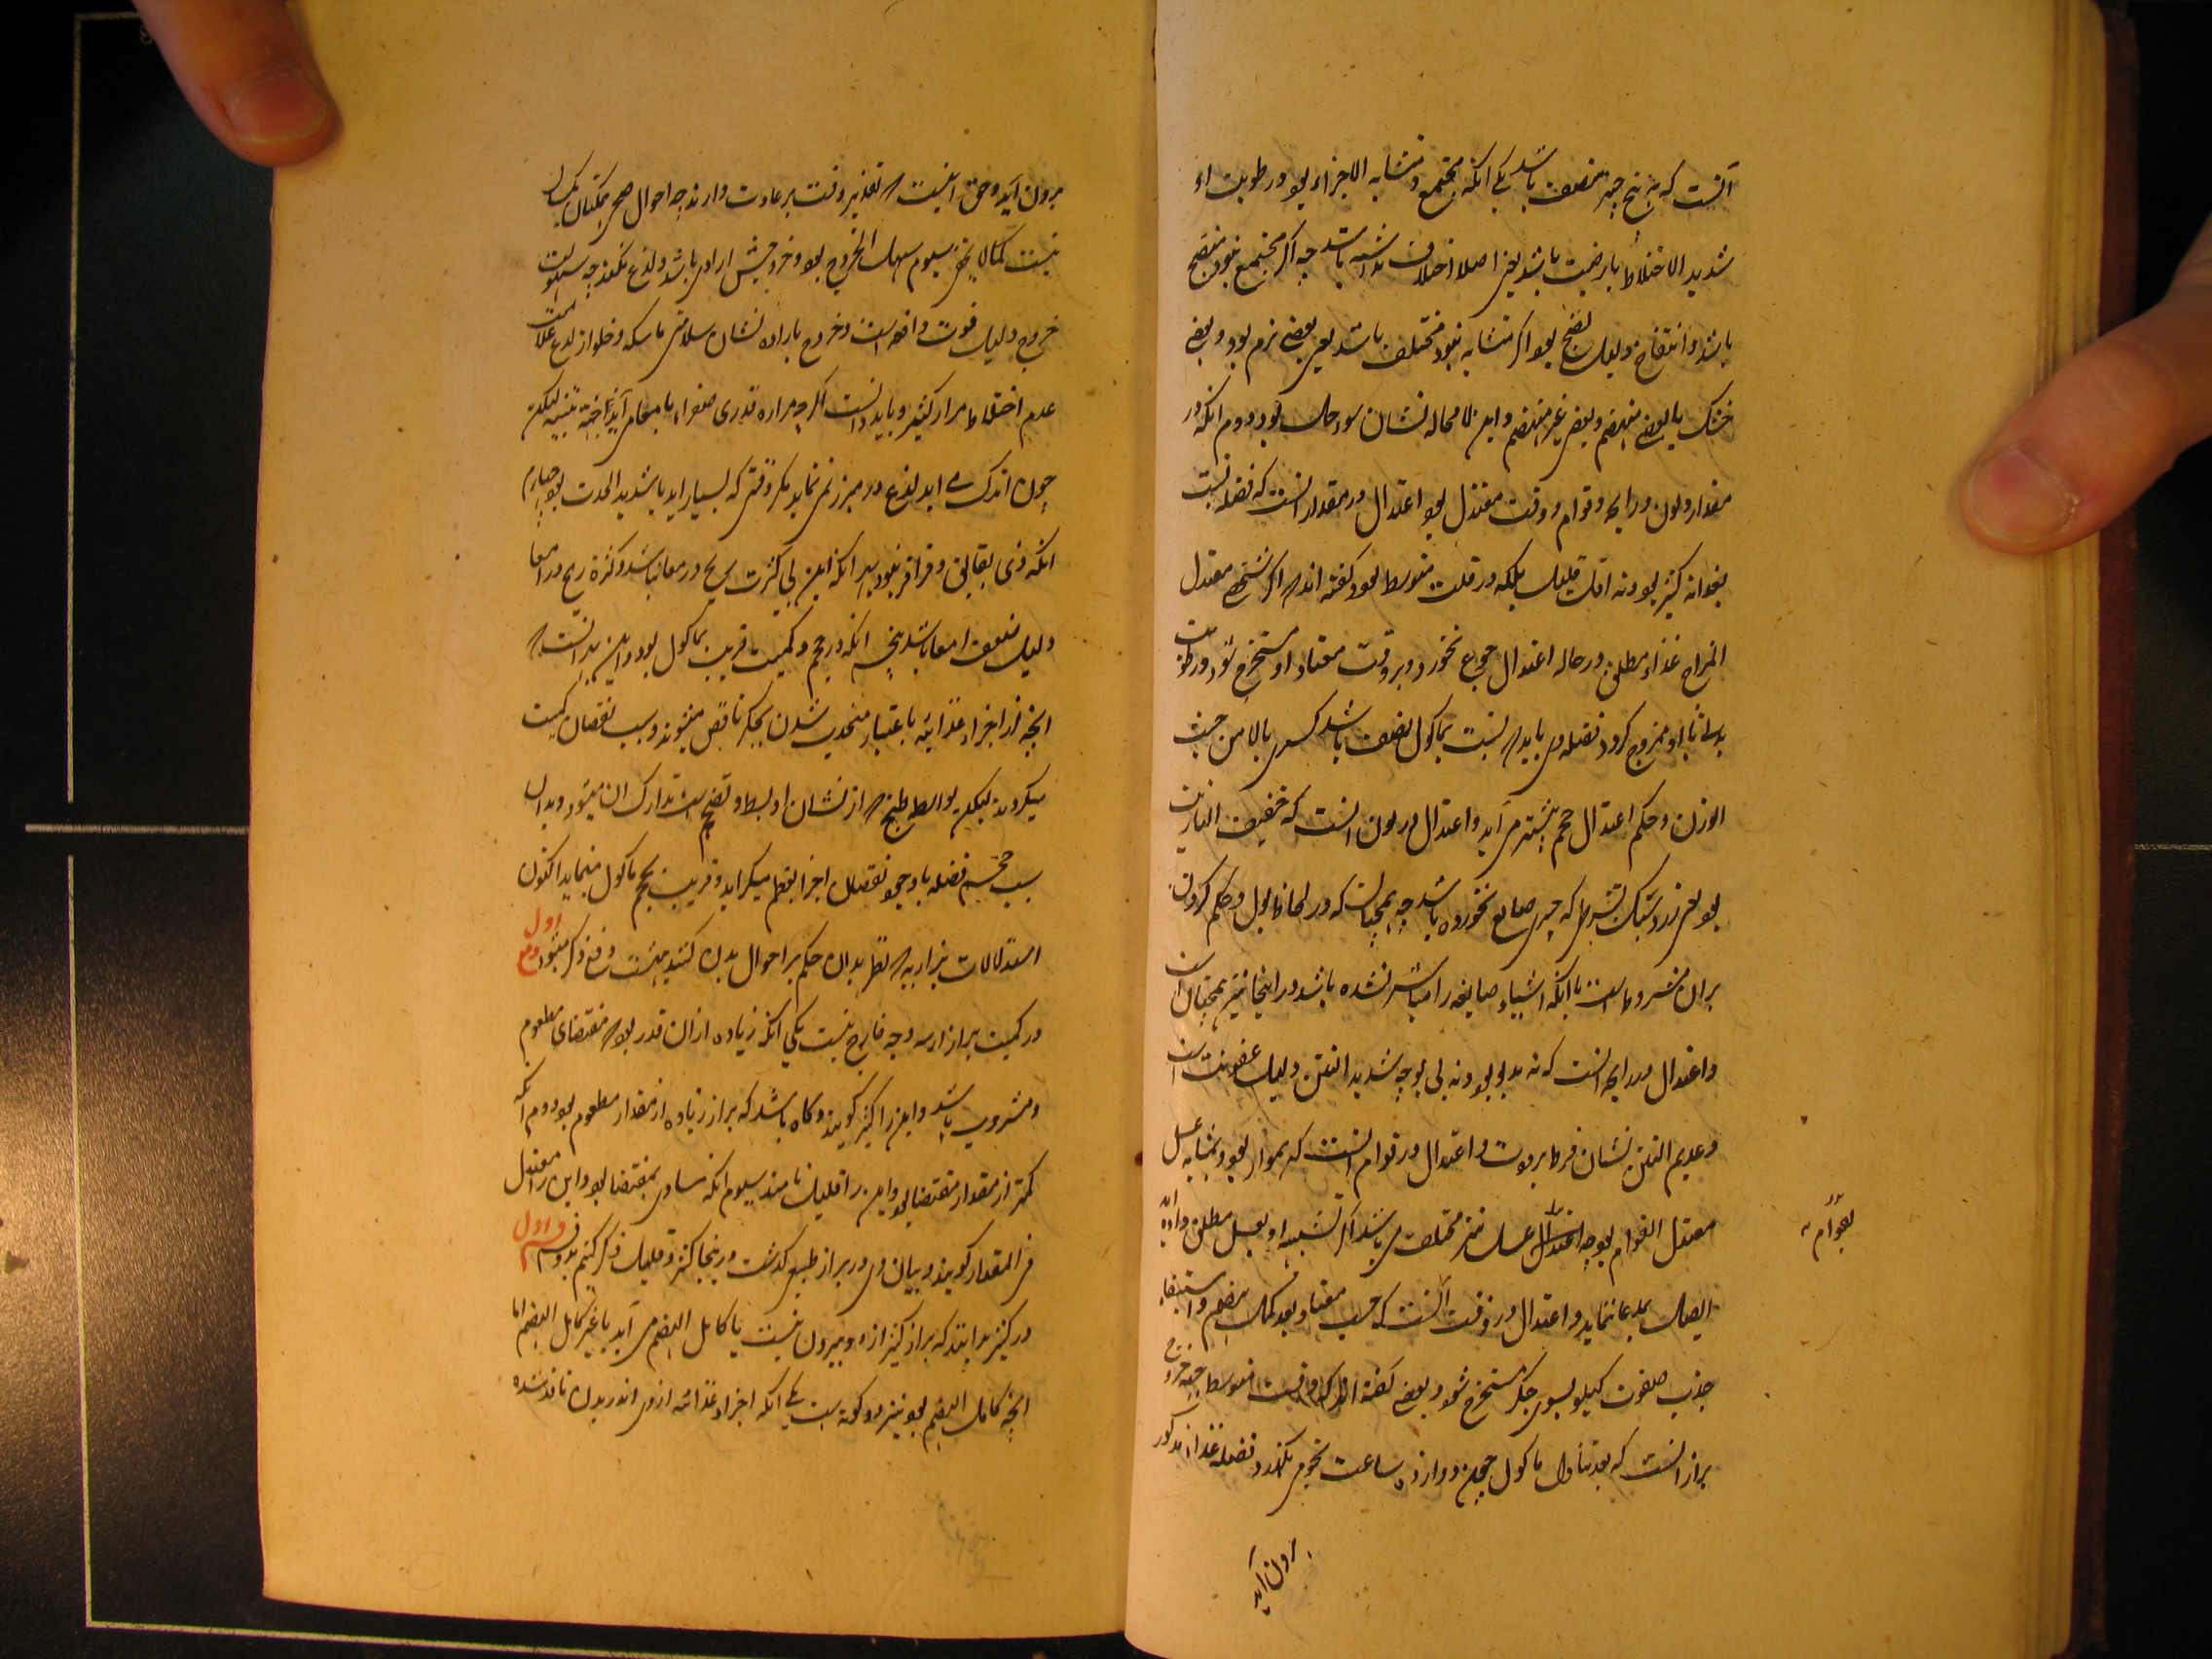 آنست که به پنج جهة متصف باشد یکی انکه مجتمع و متشابه الاجزاء بود و رطوبت او
شدید الاختلاط بارضیت باشد یعنی اصلا اختلاف نداشته باشد چه اکر مجتمع نبود منتفخ
باشد و انتفاخ دلیل نضج بود اکر متشابه نبود مختلف باشد یعنی بعضی نرم بود و بعضی
خشک یا بعضی منهضم و بعضی غیر منهضم و این لا محاله نشان سوء حال بود دوم انکه در
مقدار و لون و رایحه و قوام و وقت معتدل بود اعتدال در مقدار انست که فضله نسبت
بغذا نه کثیر بود نه اقل قلیل بلکه در قلت متوسط بود و کفته اند اکر شخصی معتدل
المزاج غذاء مطلق در حاله اعتدال جوع بخورد و بر وقت معتاد او مستخرج شود و رطوبت
بدان ممزوج کردد فضله وی باید نسبت بماکول نصف باشد کسری بالا من حیث
الوزن و حکم اعتدال حجم پیشتر می آید و اعتدال در لون انست که خفیف الناریت
بود یعنی زرد سبک بشرطی که چیزی صابغ نخورده باشد چه همچنانست که در لحاظ بول و حکم کردن
بران مشروط است بانکه اشیاء صابغه را مباشر نشده باشد در اینجا نیز همچنان است
و اعتدال در رایحه انست که نه بدبو بود و نه بی بو چه شدید النتن دلیل عفونت است
و عدیم النتن نشان فرط برودت و اعتدال در قوام انست که هموار بود و بمثابه عسل
معتدل القوام بود چه عسل نیز مختلف می باشد اکر تشبیه او بعسل مطلق داده
بقوام
ایصال بمدعا ننماید و اعتدال در وقت آنست که حسب معتاد و بعد تکمیل هضم و استیفاء
جذب صفوت کیلوس بسوی جکر مستخرج شود و بعضی کفته اند که وقت متوسط جهة خروج
براز انست که بعد تناول ماکول چون دوازده ساعت نجومی بکذرد فضله غذاء مذکور
برون آید
برون آید و حق انیست تقدیر وقت بر عادت دارند چه احوال صحی یکسان
نیست کما لا یخفی سیوم سهل الخروج بود و خروجش ارادی باشد و لذع نکند چه سهولت
خروج دلیل قوت دافعه است و خروج باراده نشان سلامتی ماسکه و خلو از لذع علامت
عدم اختلاط مرار کثیر و باید دانست اکرچه مراره قدری صفراء بامعا می آید جهة تنبیه لیکن
چون اندک می اید لذع در مبرز نمی نماید مکر وقتی که بسیار اید یا شدید الحدت بود چهارم
انکه ذی بقابق و قراقر نبود بهر انکه این بی کثرت ریح در معا نباشد و کثرة ریح در امعا
دلیل ضعف امعا باشد پنجم انکه در حجم و کمیت قریب بماکول بود و این بدانست
انچه از اجزاء غذائیه باعتبار منجذب شدن بجکر ناقص میشوند و سبب نقصان کمیت
میکردند لیکن بواسطه طبخ از نشان او بسط و نضج است تدارک ان میشود و بدان
سبب حجم فضله با وجود نقصان اجزا بعظم میکراید و قریب بحجم ماکول مینماید اکنون
استدلالات برازیه نظر بدان حکم بر احوال بدن کنند بهشت وقع ذکر میشود اول
در کمیت براز از سه وجه خارج نیست یکی انکه زیاده از ان قدر بود مقتضای مطعوم
و مشروب باشد و این را کثیر کویند و کاه باشد که براز زیاده از مقدار مطعوم بود دوم انکه
کمتر از مقدار مقتضا بود و این را قلیل نامند سیوم انکه مساوی بمقتضا بود و این را معتدل
فی المقدار کویند و بیان وی در براز طبیعی کذشت در ینجا کثیر و قلیل ذکر کنیم بدو قسم اول
در کثیر بدانند که براز کثیر از دو بیرون نیست یا کامل الهضم می آید یا غیر کامل الهضم اما
انچه کامل الهضم بود نیز دو کونه است یکی انکه اجزاء غذائیه از وی اندر بدن نافذ شده